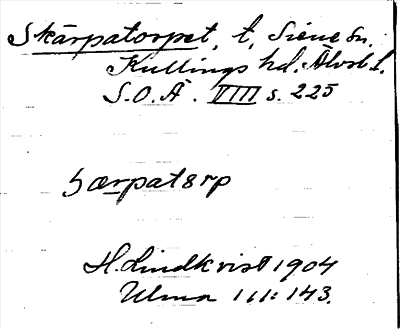 Skärpatorpet, t. Siene sn.
Kullings hd. Älvsb l.
S.O.Ä. VIII s. 225
ʖærpatɜrp
H. Lindkvist 1904
Ulma 111:143.